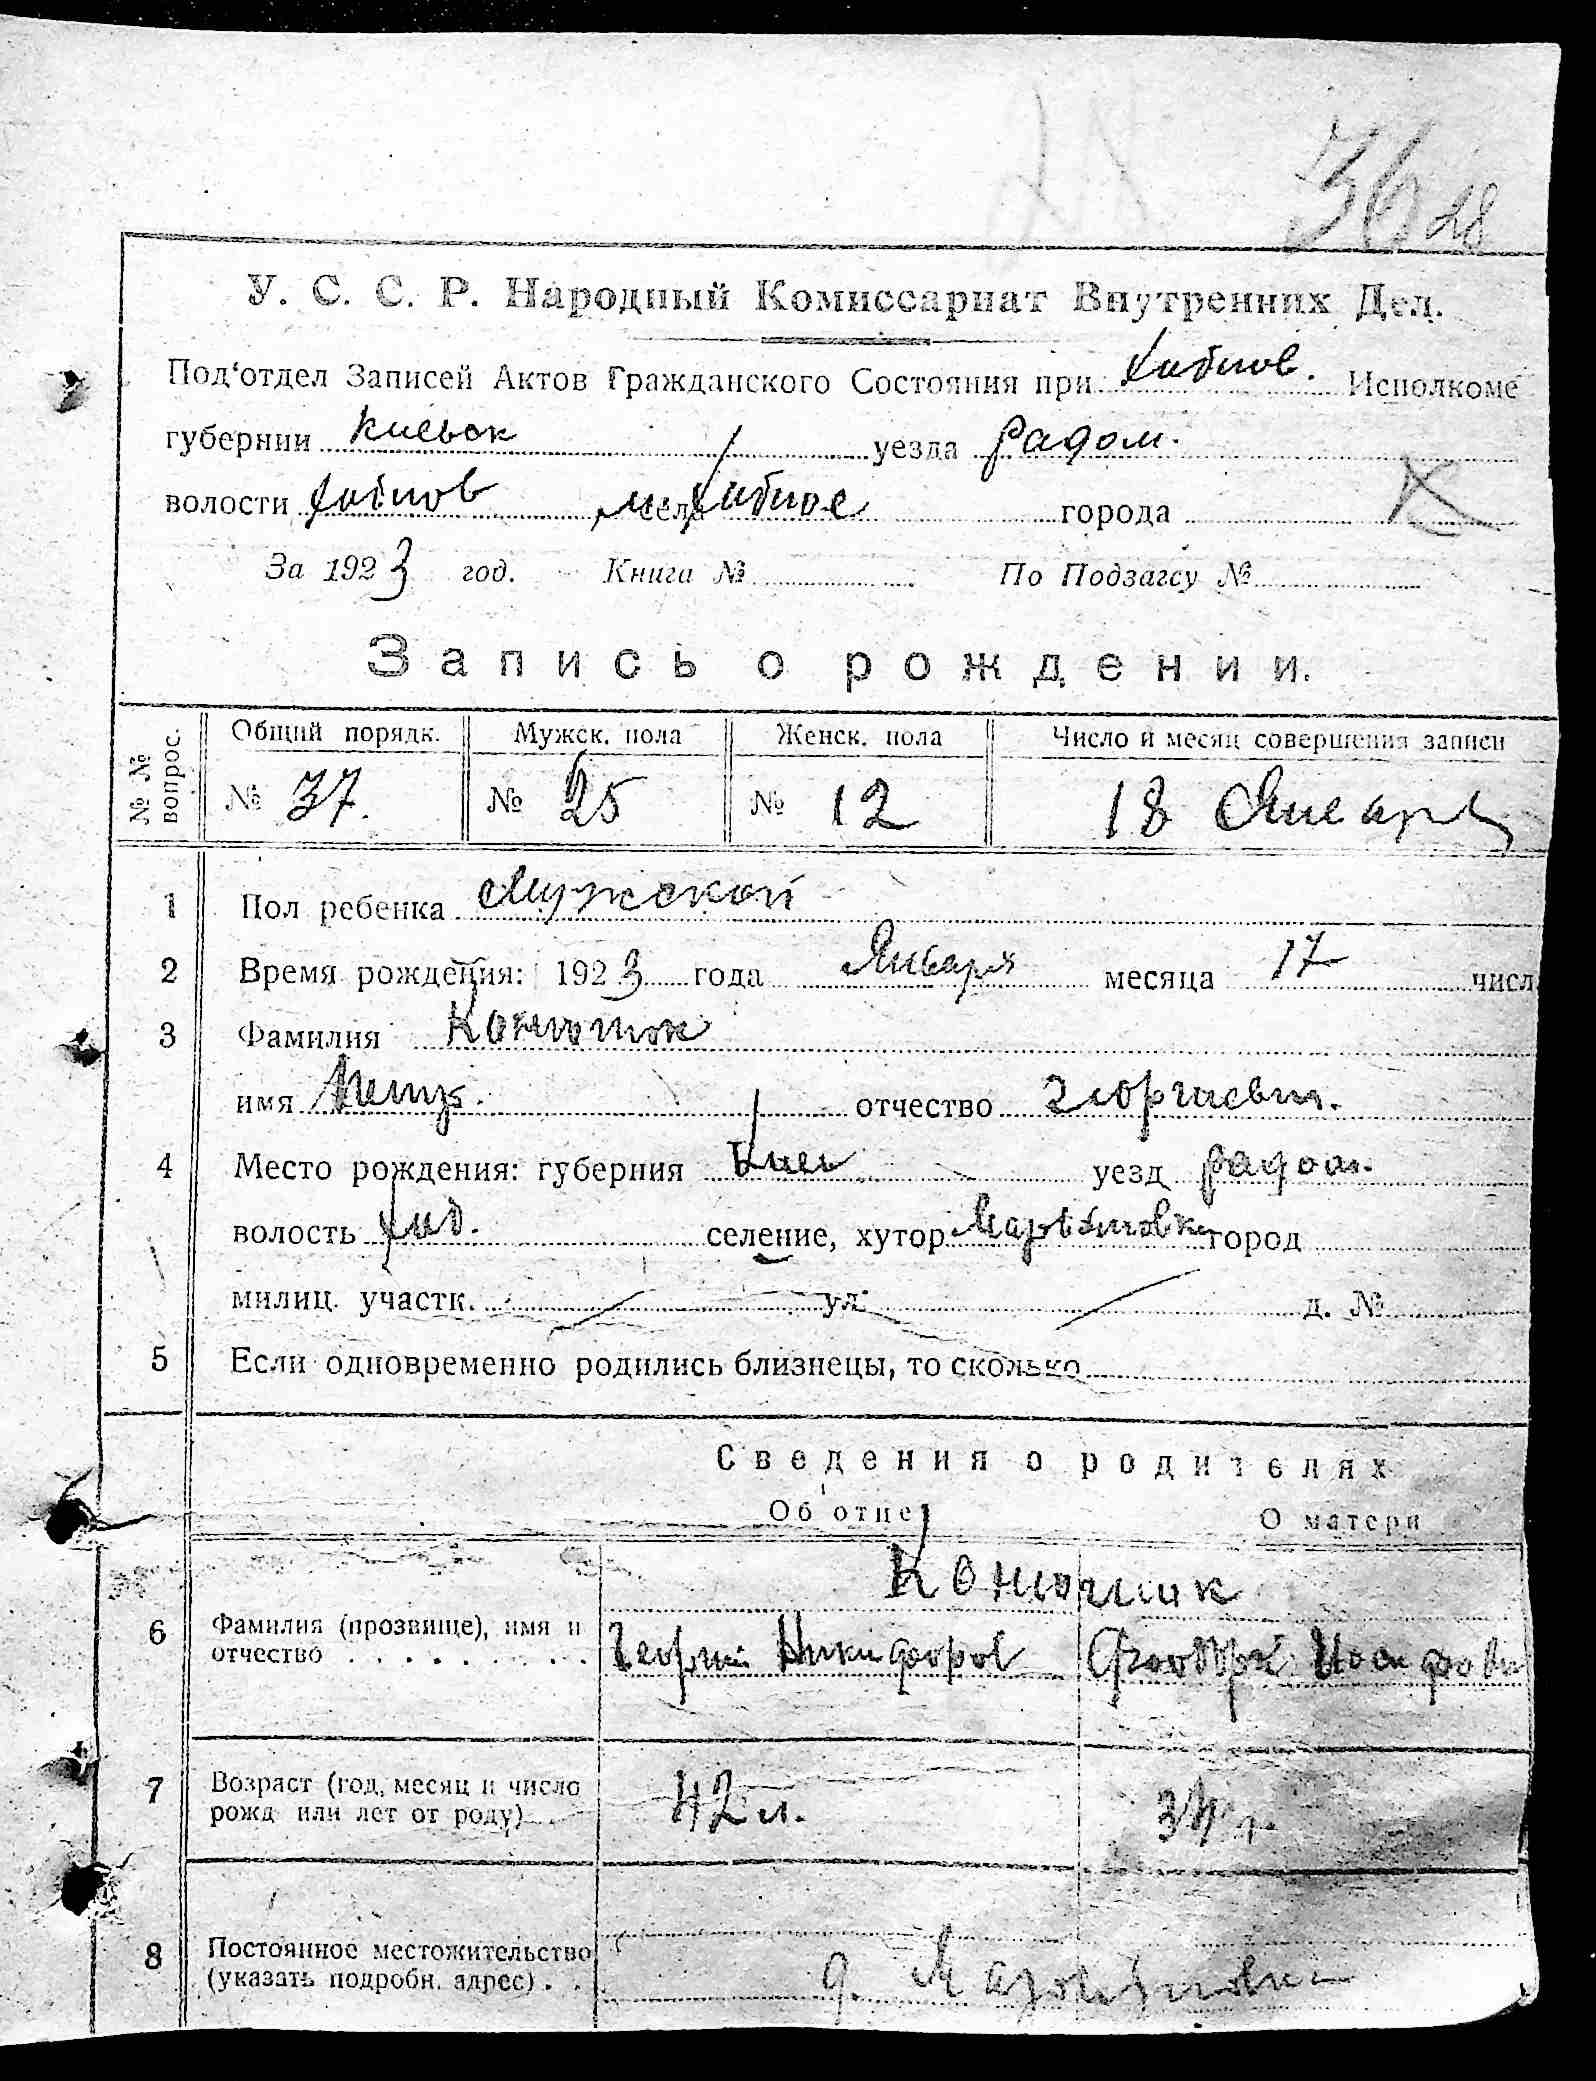 36 28
У. С. С. Р. Народный Комиссариат Внутренних Дел.
Под'отдел Записей Актов Гражданского Состояния при Хабнов. Исполкоме
губернии Киевск уезда Радом.
волости Хабнов м села Хабное города
За 1923 год. Книга № По Подзагсу №
Запись о рождении.
№ № вопрос. Общий порядк. Мужск. пола Женск. пола Число и месяц совершения записи
№ 37. № 25 № 12 18 Января
1 Пол ребенка Мужской
2 Время рождения: 1923 года Января месяца 17 числ
3 Фамилия Конюшок
имя отчество Георгиевич.
4 Место рождения: губерния Киев уезд Радом.
волость Хаб. селение, хутор Марьяновка город
милиц. участк. ул. д. №
5 Если одновременно родились близнецы, то сколько
Сведения о родителях
Об отце О матери
6 Фамилия (прозвище), имя и
отчество Георгий Никифоров
7 Возраст (год, месяц и число
рожд или лет от роду) 42 л. 34 г.
8 Постоянное местожительство
(указать подробн. адрес) д. Марьяновка